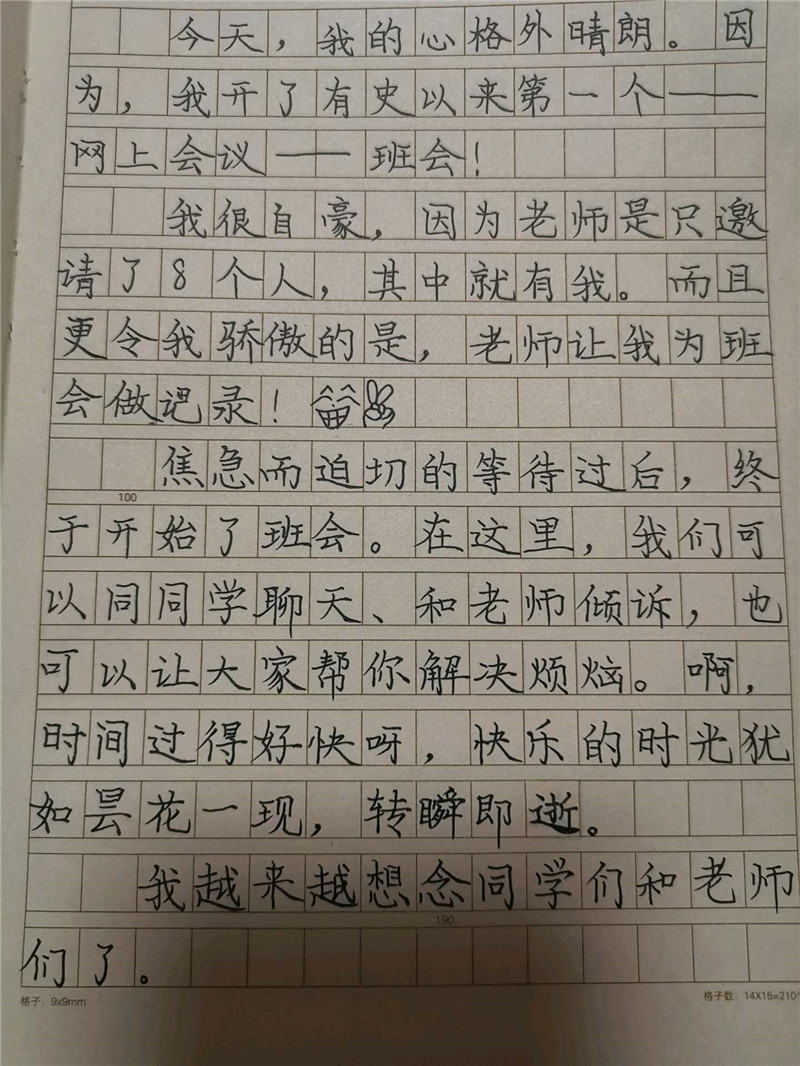 今天，我的心格外晴朗。因
为，我开了有史以来第一个——
网上会议——班会！
我很自豪，因为老师是只邀
请了8个人，其中就有我。而且
更令我骄傲的是，老师让我为班
会做记录！
焦急而迫切的等待过后，终
100
于开始了班会。在这里，我们可
以同同学聊天、和老师倾诉，也
可以让大家帮你解决烦恼。啊，
时间过得好快呀，快乐的时光犹
如昙花一现，转瞬即逝。
我越来越想念同学们和老师
190
们了。
格子：9x9mm 格子数：14X15=210